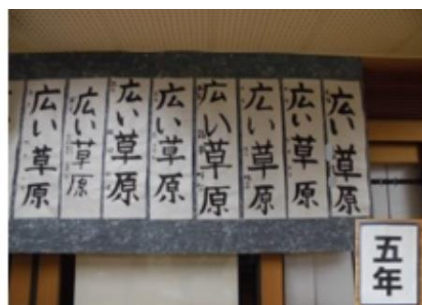 広い草原
広い草原
広い草原
広い草原
広い草原
広い草原
広い草原
広い草原
五年